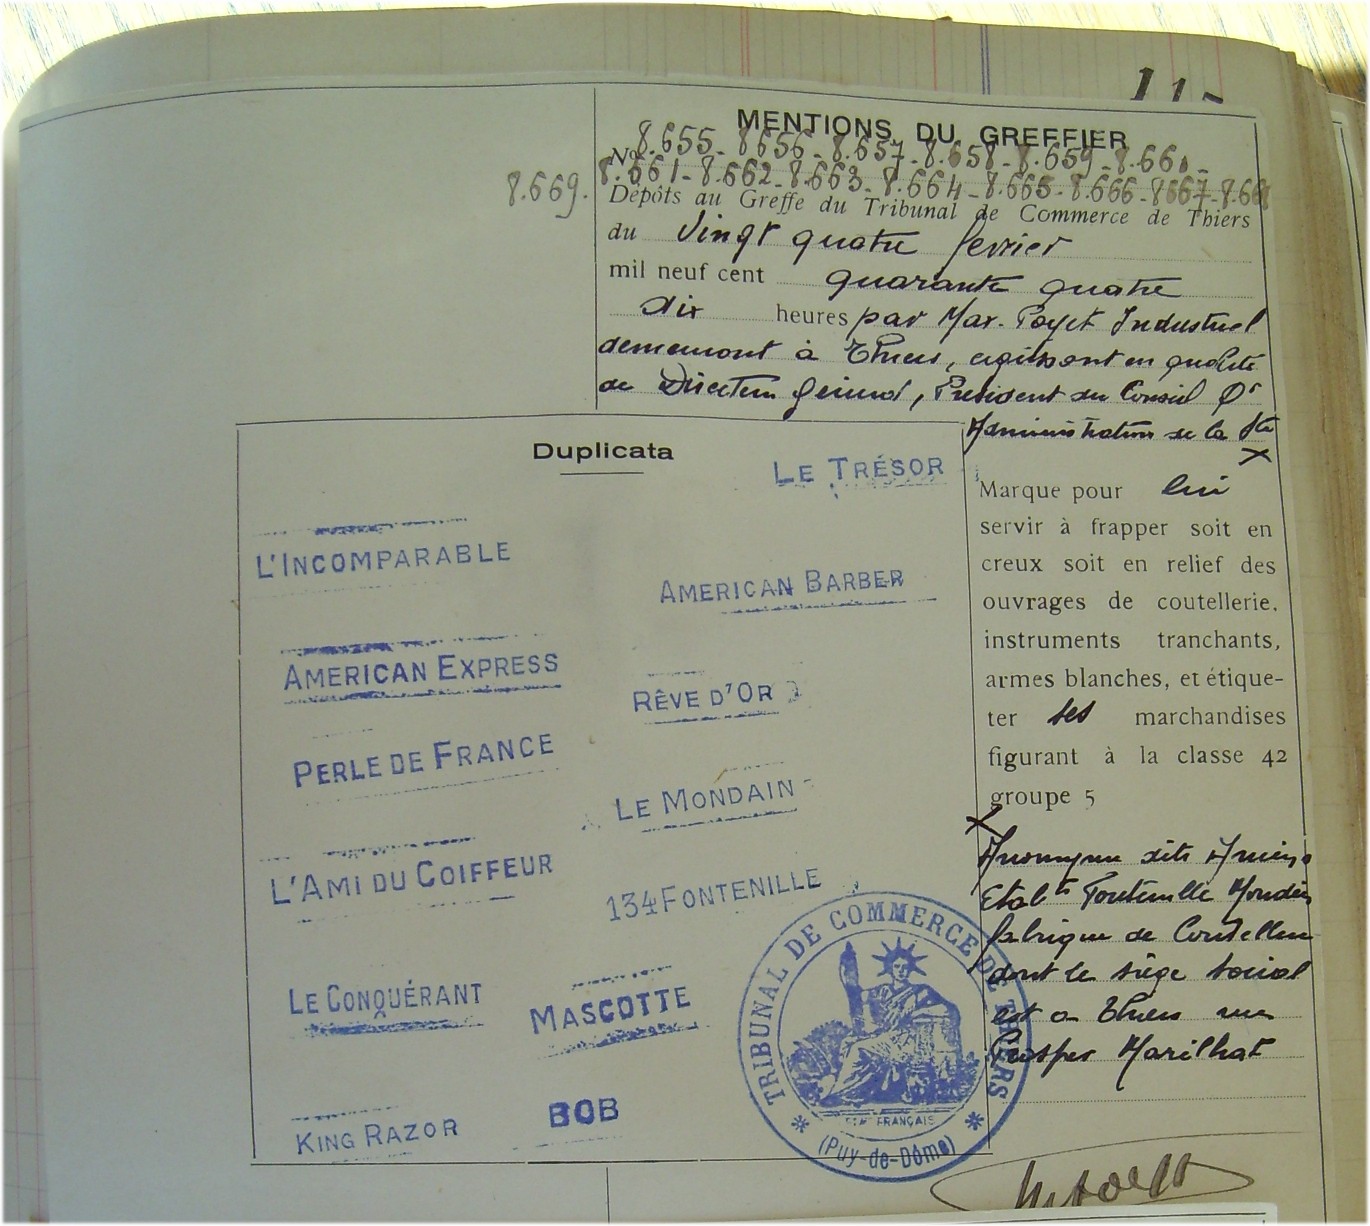 MENTIONS DU GREFFIER
Nos 8.655 - 8656 - 8.657 - 8.658 - 8.659 - 8.660 -
8.661 - 8.662 - 8.663 - 8.664 - 8.665 - 8.666 - 8667 - 8.668
8.669.
Dépôts au Greffe du Tribunal de Commerce de Thiers
du vingt quatre fevrier
mil neuf cent quarante quatre
dix heures par Max. Poyet Industriel
demeurant à Thiers, agissant en qualité
de Directeur General, President du Conseil d'
Administration de la Sté
x
Duplicata
LE TRÉSOR
L'INCOMPARABLE
AMERICAN BARBER
AMERICAN EXPRESS
RÊVE D'OR
PERLE DE FRANCE
LE MONDAIN
L'AMI DU COIFFEUR
134 FONTENILLE
LE CONQUÉRANT
MASCOTTE
KING RAZOR
BOB
Marque pour lui
servir à frapper soit en
creux soit en relief des
ouvrages de coutellerie,
instruments tranchants,
armes blanches, et étique-
ter ses marchandises
figurant à la classe 42
groupe 5
x
Anonyme dite
Etabts Fontenille
fabrique de Coutellerie
dont le siège social
est a Thiers rue
Prosper Marilhat
TRIBUNAL DE COMMERCE DE THIERS
FRANÇAIS
(Puy-de-Dôme)